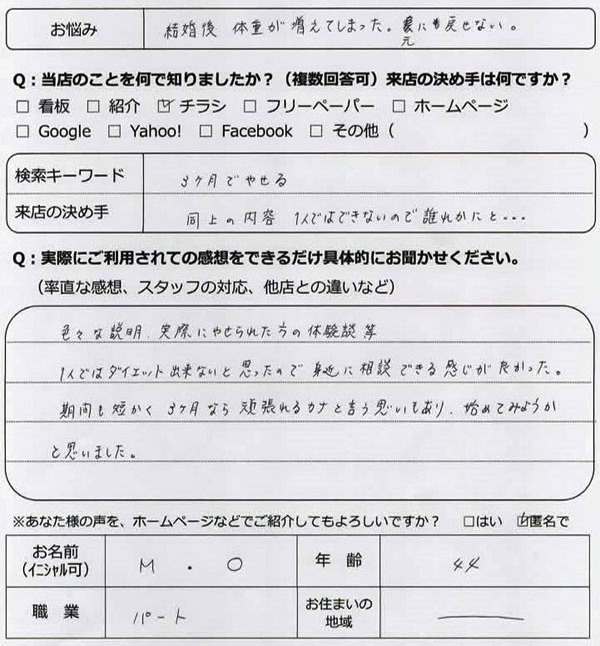 お悩み 結婚後 体重が増えてしまった。元にも戻せない。
Q：当店のことを何で知りましたか？（複数回答可）来店の決め手は何ですか？
□ 看板 □ 紹介 ☑ チラシ □ フリーペーパー □ ホームページ
□ Google □ Yahoo! □ Facebook □ その他（ ）
検索キーワード 3ヶ月でやせる
来店の決め手 同上の内容 1人ではできないので誰れかにと...
Q：実際にご利用されての感想をできるだけ具体的にお聞かせください。
（率直な感想、スタッフの対応、他店との違いなど）
色々な説明、実際にやせられた方の体験談等
1人ではダイエット出来ないと思ったので身近に相談できる感じが良かった。
期間も短かく 3ヶ月なら頑張れるカナと言う思いもあり、始めてみようか
と思いました。
※あなた様の声を、ホームページなどでご紹介してもよろしいですか？ □はい ☑匿名で
お名前 M・O 年 齢 44
（イニシャル可）
職 業 パート お住まいの
地域